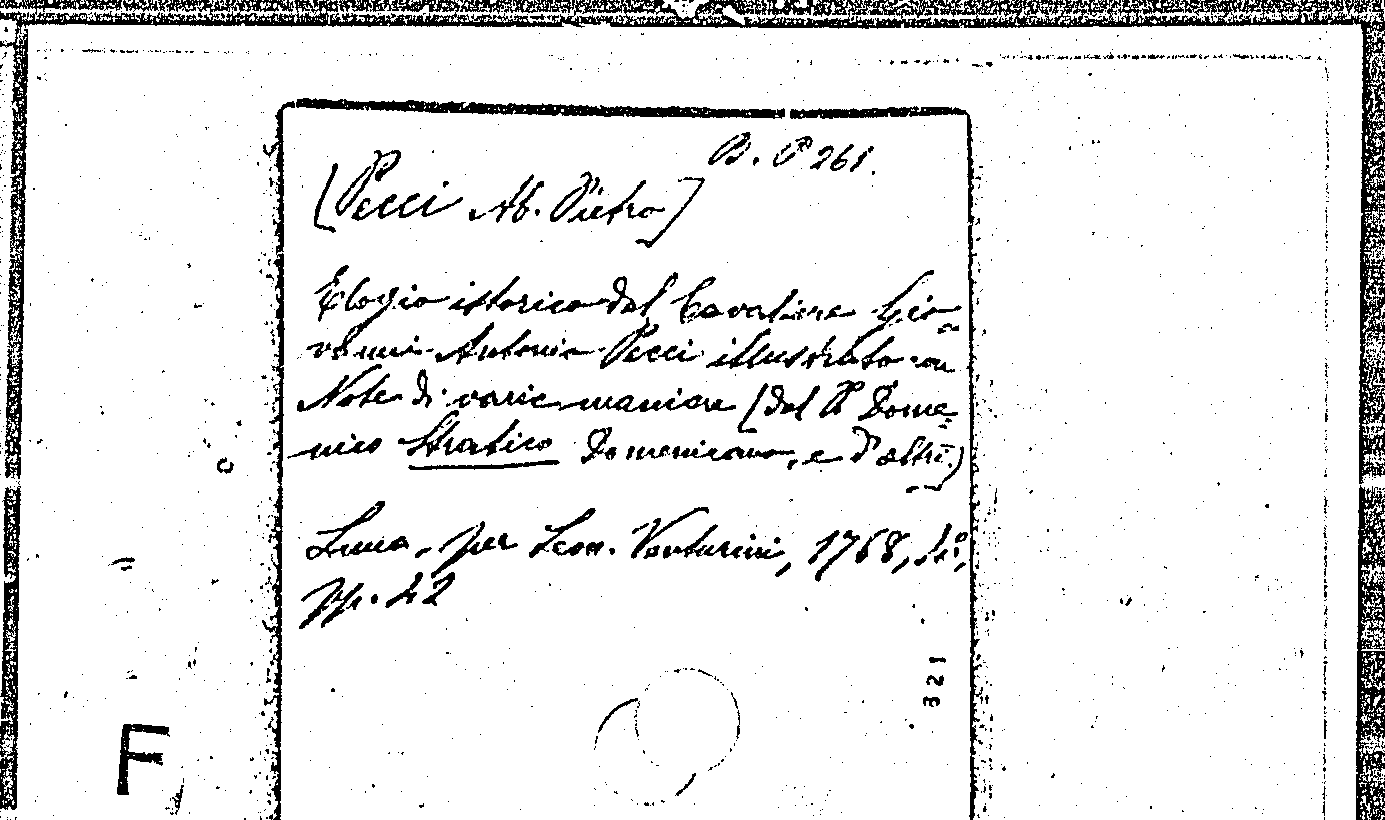 B. P 261.
[Pecci Ab. Pietro]
Elogio istorico del Cavaliere Gio-
vanni Antonio Pecci illustrato con
Note di varie maniere [del P. Dome-
nico Stratico Domenicano, e d'altri]
Lucca, per Leon. Venturini, 1768, 4º,
pp. 42
321
F